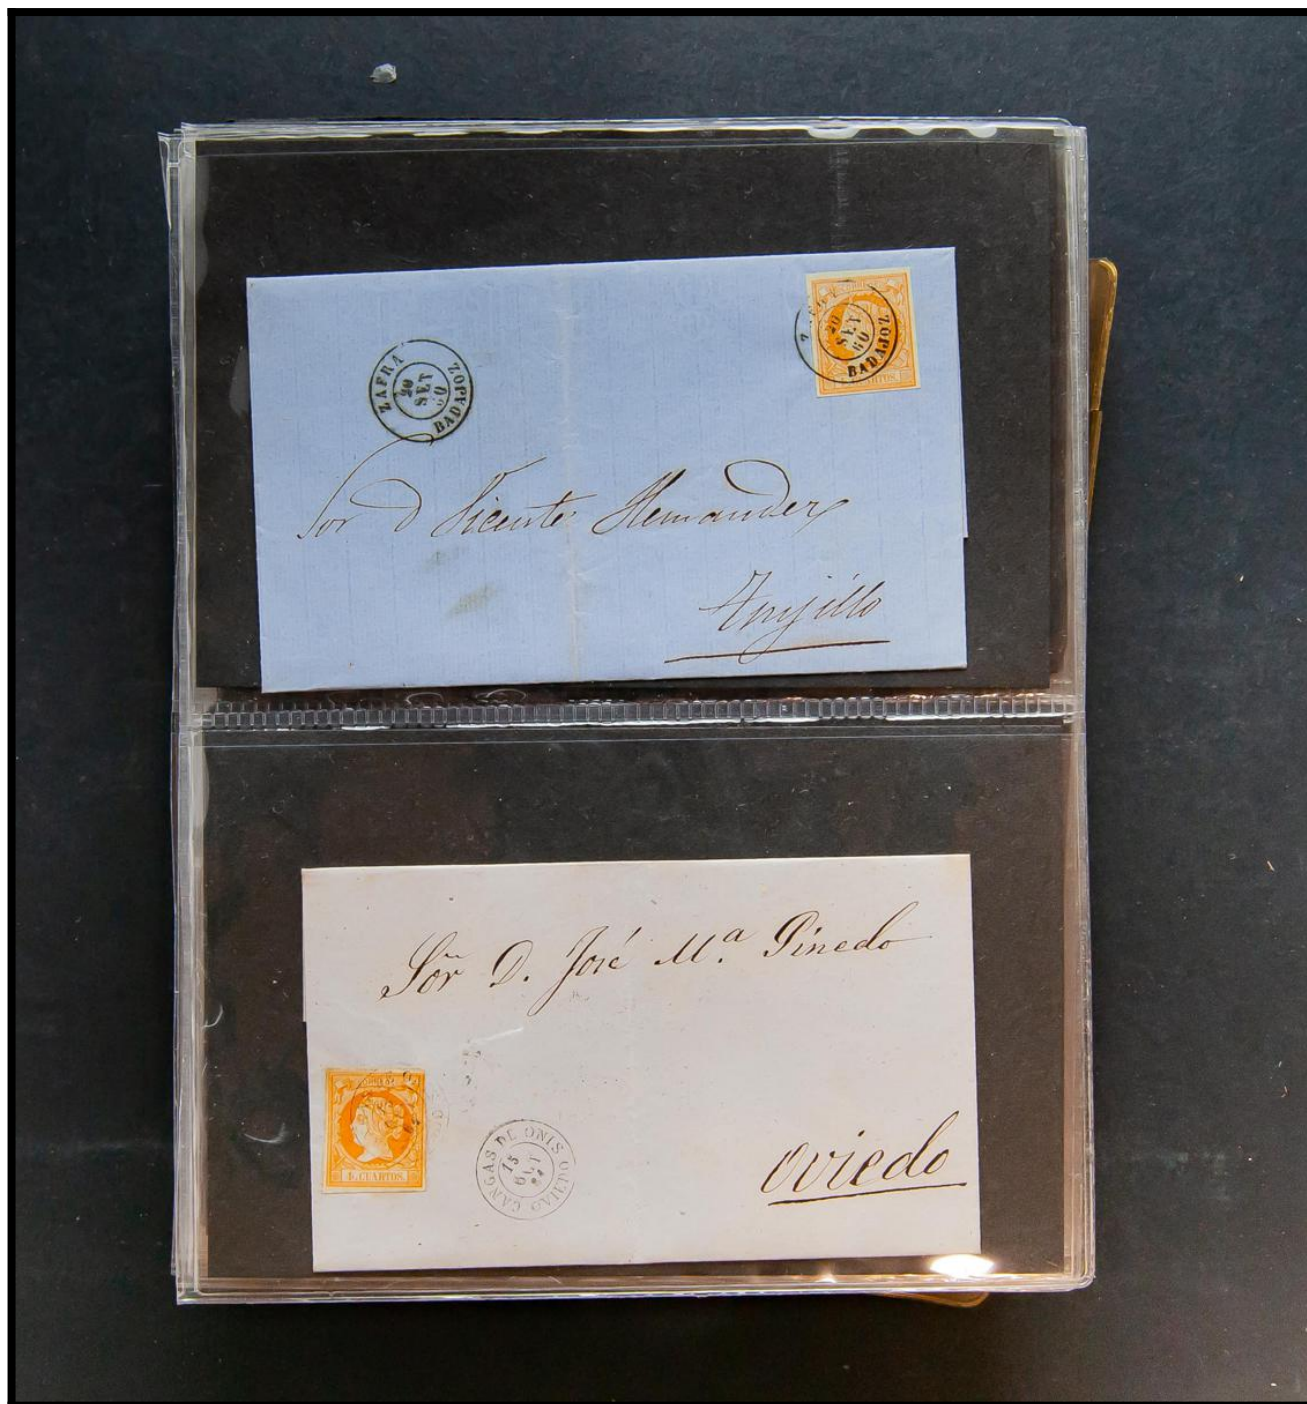 ZAFRA
20
SET
60
BADAJOZ
20
60
BADAJOZ
CUARTOS.
Sor D Vicente Hernandez
Trujillo
Sor D. José Mª. Pinedo
4 CUARTOS.
CANGAS DE ONIS OVIEDO
15
Oviedo